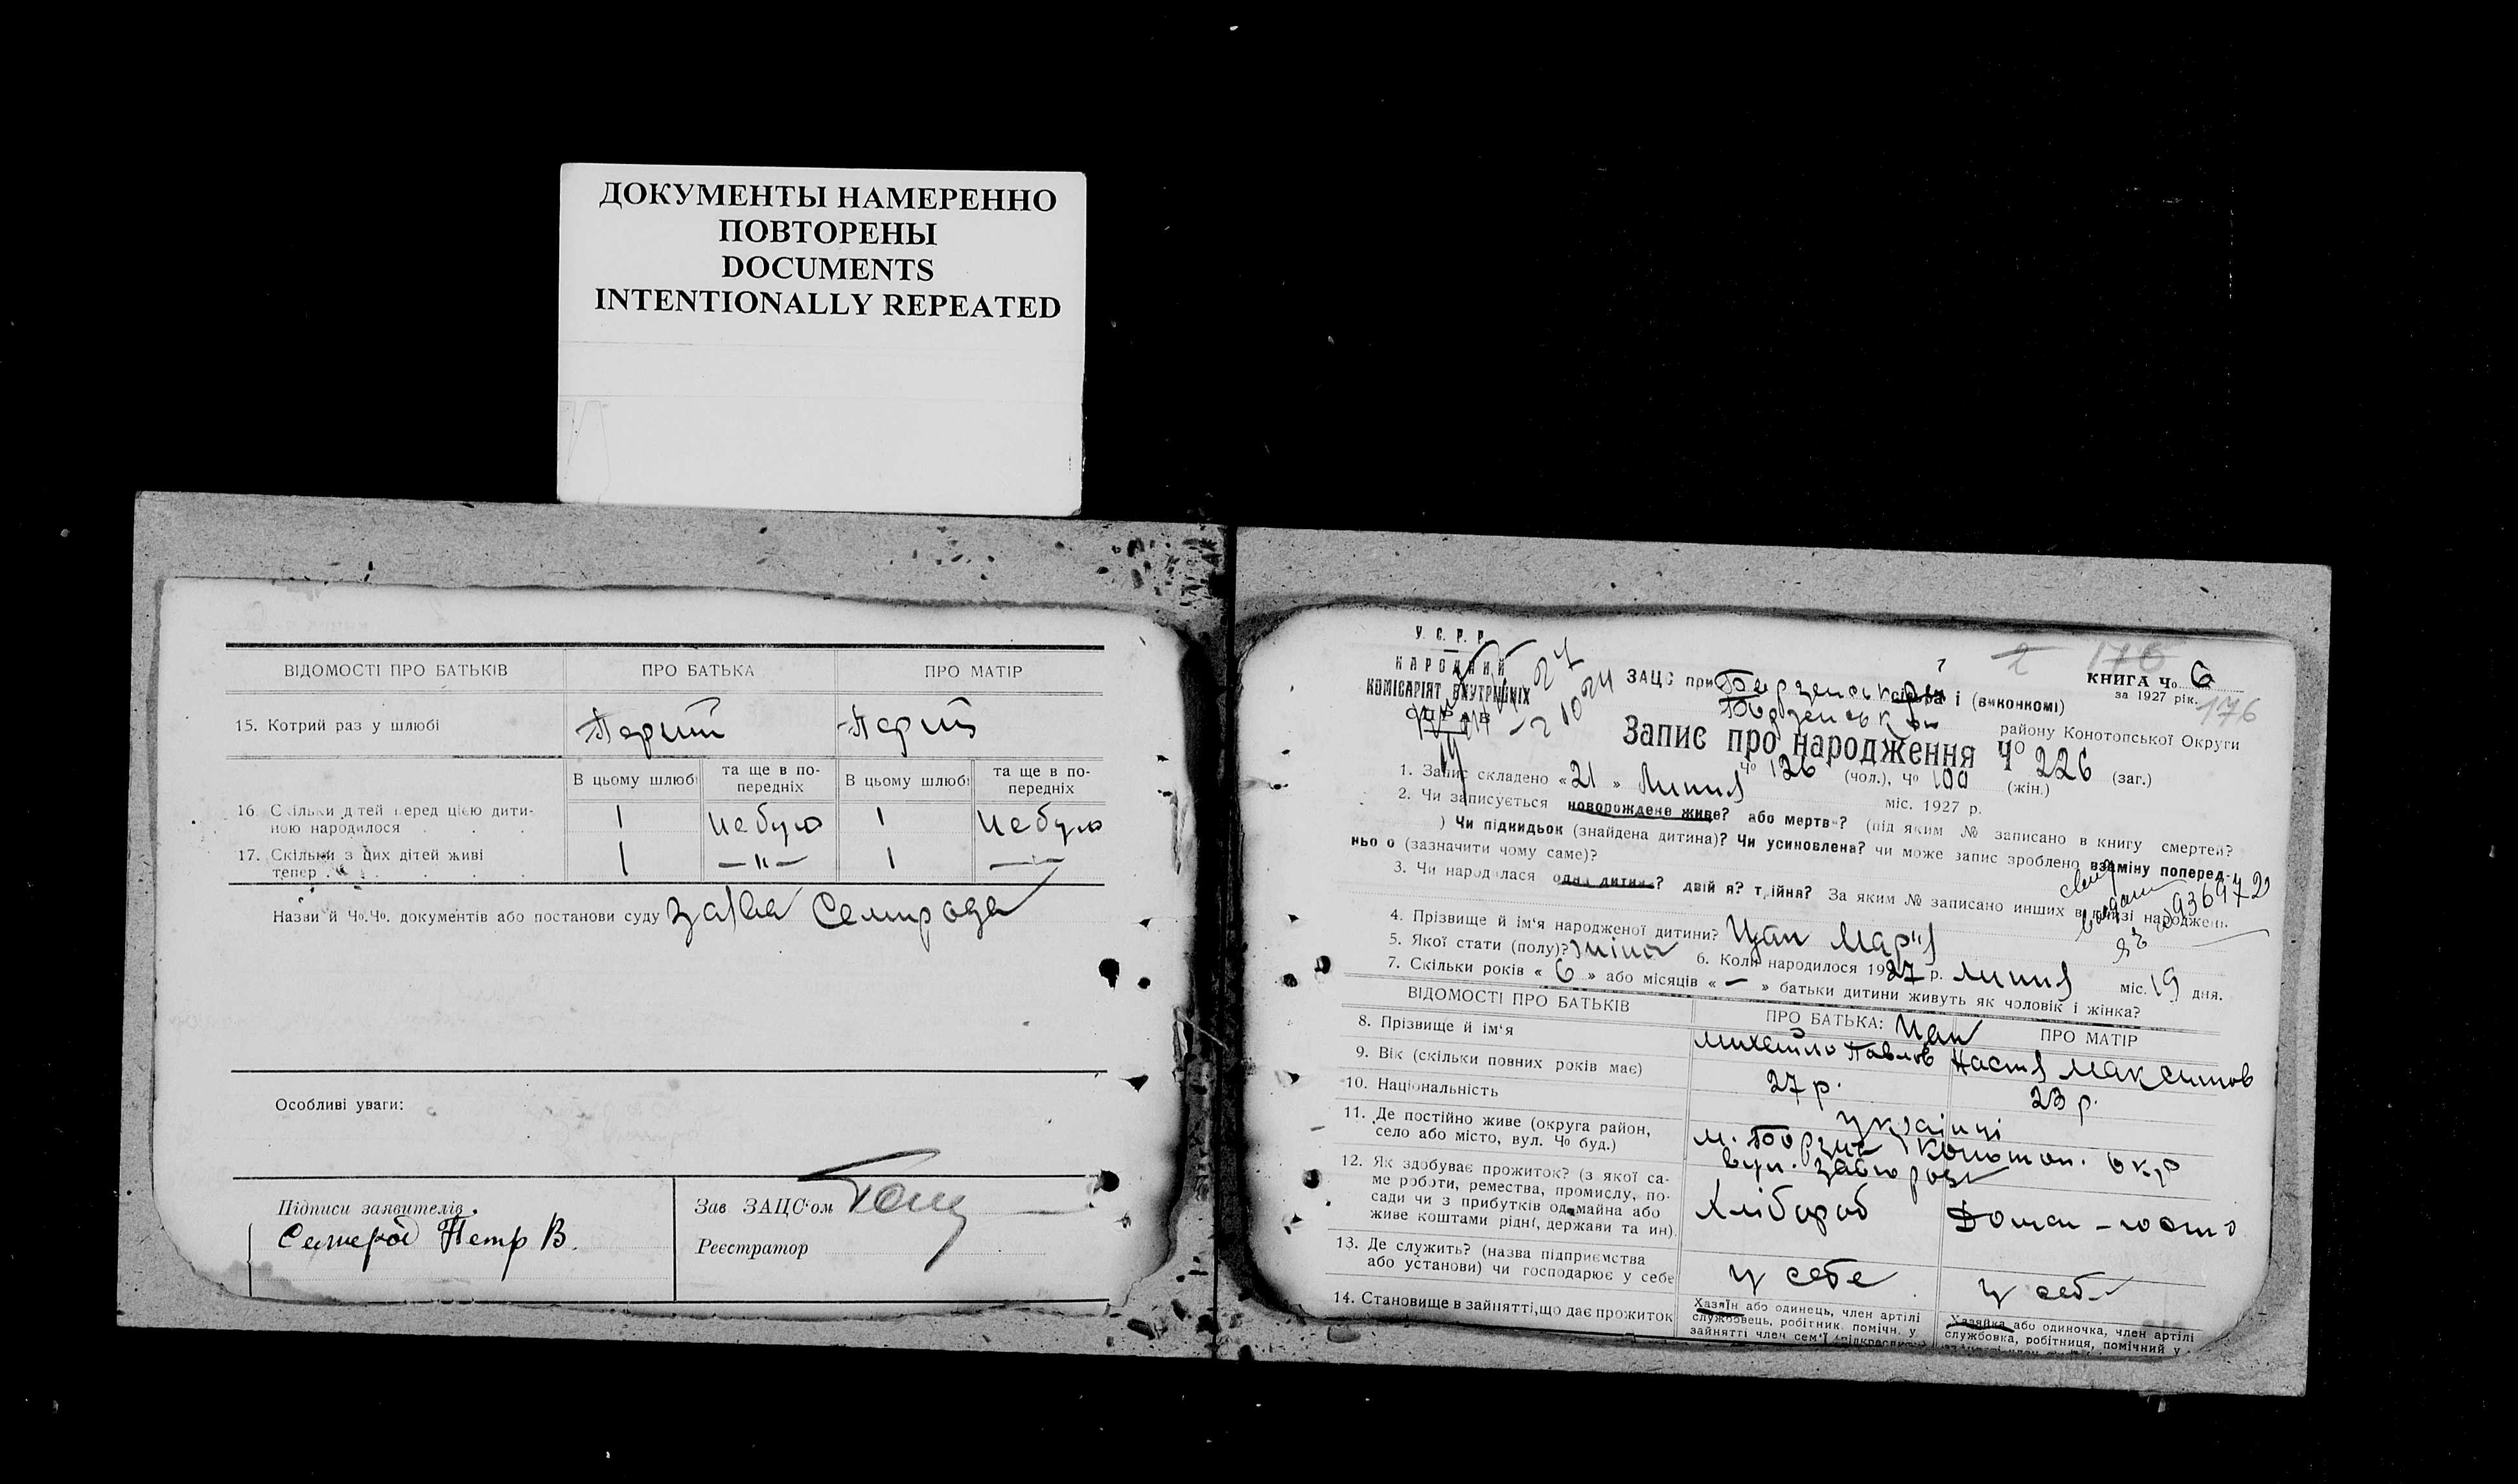 ДОКУМЕНТЫ НАМЕРЕННО
ПОВТОРЕНЫ
DOCUMENTS
INTENTIONALLY REPEATED
ВІДОМОСТІ ПРО БАТЬКІВ ПРО БАТЬКА ПРО МАТІР
15. Котрий раз у шлюбі Перший Перший
В цьому шлюбі та ще в по-передніх В цьому шлюбі та ще в по-передніх
16. Скільки дітей перед цією дити-
ною народилося 1 не було 1 не було
17. Скільки з цих дітей живі
тепер 1 — " — 1 — " —
Назви й Чо.Чо. документів або постанови суду заява Семирода
Особливі уваги:
Підписи заявителів Зав ЗАЦС‘ом
Семирод Петр В.
Реєстратор
У. С. Р. Р.
НАРОДНИЙ
КОМІСАРІЯТ ВНУТРІШНІХ
СПРАВ
176
КНИГА Чо. 6
за 1927 рік.
176
ЗАЦС при Борзенськ сільра і (виконкомі)
Борзенськ району Конотопської Округи
Запис про народження Чо 226 (заг.)
Чо 126 (чол.), Чо 100 (жін.)
1. Запис складено « 21 » Липня міс. 1927 р.
2. Чи записується новорождене живе? або мертве? (під яким № записано в книгу смертей?
) Чи підкидьок (знайдена дитина)? Чи усиновлена? чи може запис зроблено взаміну поперед-
нього (зазначити чому саме)?
3. Чи народилася одна дитина? двійня? трійня? За яким № записано инших в книзі народжень
4. Прізвище й ім‘я народженої дитини? Цап Марія
5. Якої стати (полу)? жіноч 6. Коли народилося 1927 р. липня міс. 19 дня.
7. Скільки років « 6 » або місяців « — » батьки дитини живуть як чоловік і жінка?
ВІДОМОСТІ ПРО БАТЬКІВ ПРО БАТЬКА: Цап ПРО МАТІР
8. Прізвище й ім‘я Михайло Павлов Настя Максимов
9. Вік (скільки повних років має) 27 р. 23 р.
10. Національність українці
11. Де постійно живе (округа район,
село або місто, вул. Чо буд.) м. Борзна Конотоп. окр
вул.
12. Як здобуває прожиток? (з якої са-
ме роботи, ремества, промислу, по-
сади чи з прибутків од майна або
живе коштами рідні, держави та ин). Хлібороб Домаш-госпо
13. Де служить? (назва підприємства
або установи) чи господарює у себе у себе у себе
14. Становище в зайнятті, що дає прожиток
Хазяїн або одинець, член артілі
службовець, робітник. помічн. у
зайнятті член сем‘ї (підкреслити)
Хазяйка або одиночка, член артілі
службовка, робітниця, помічний у